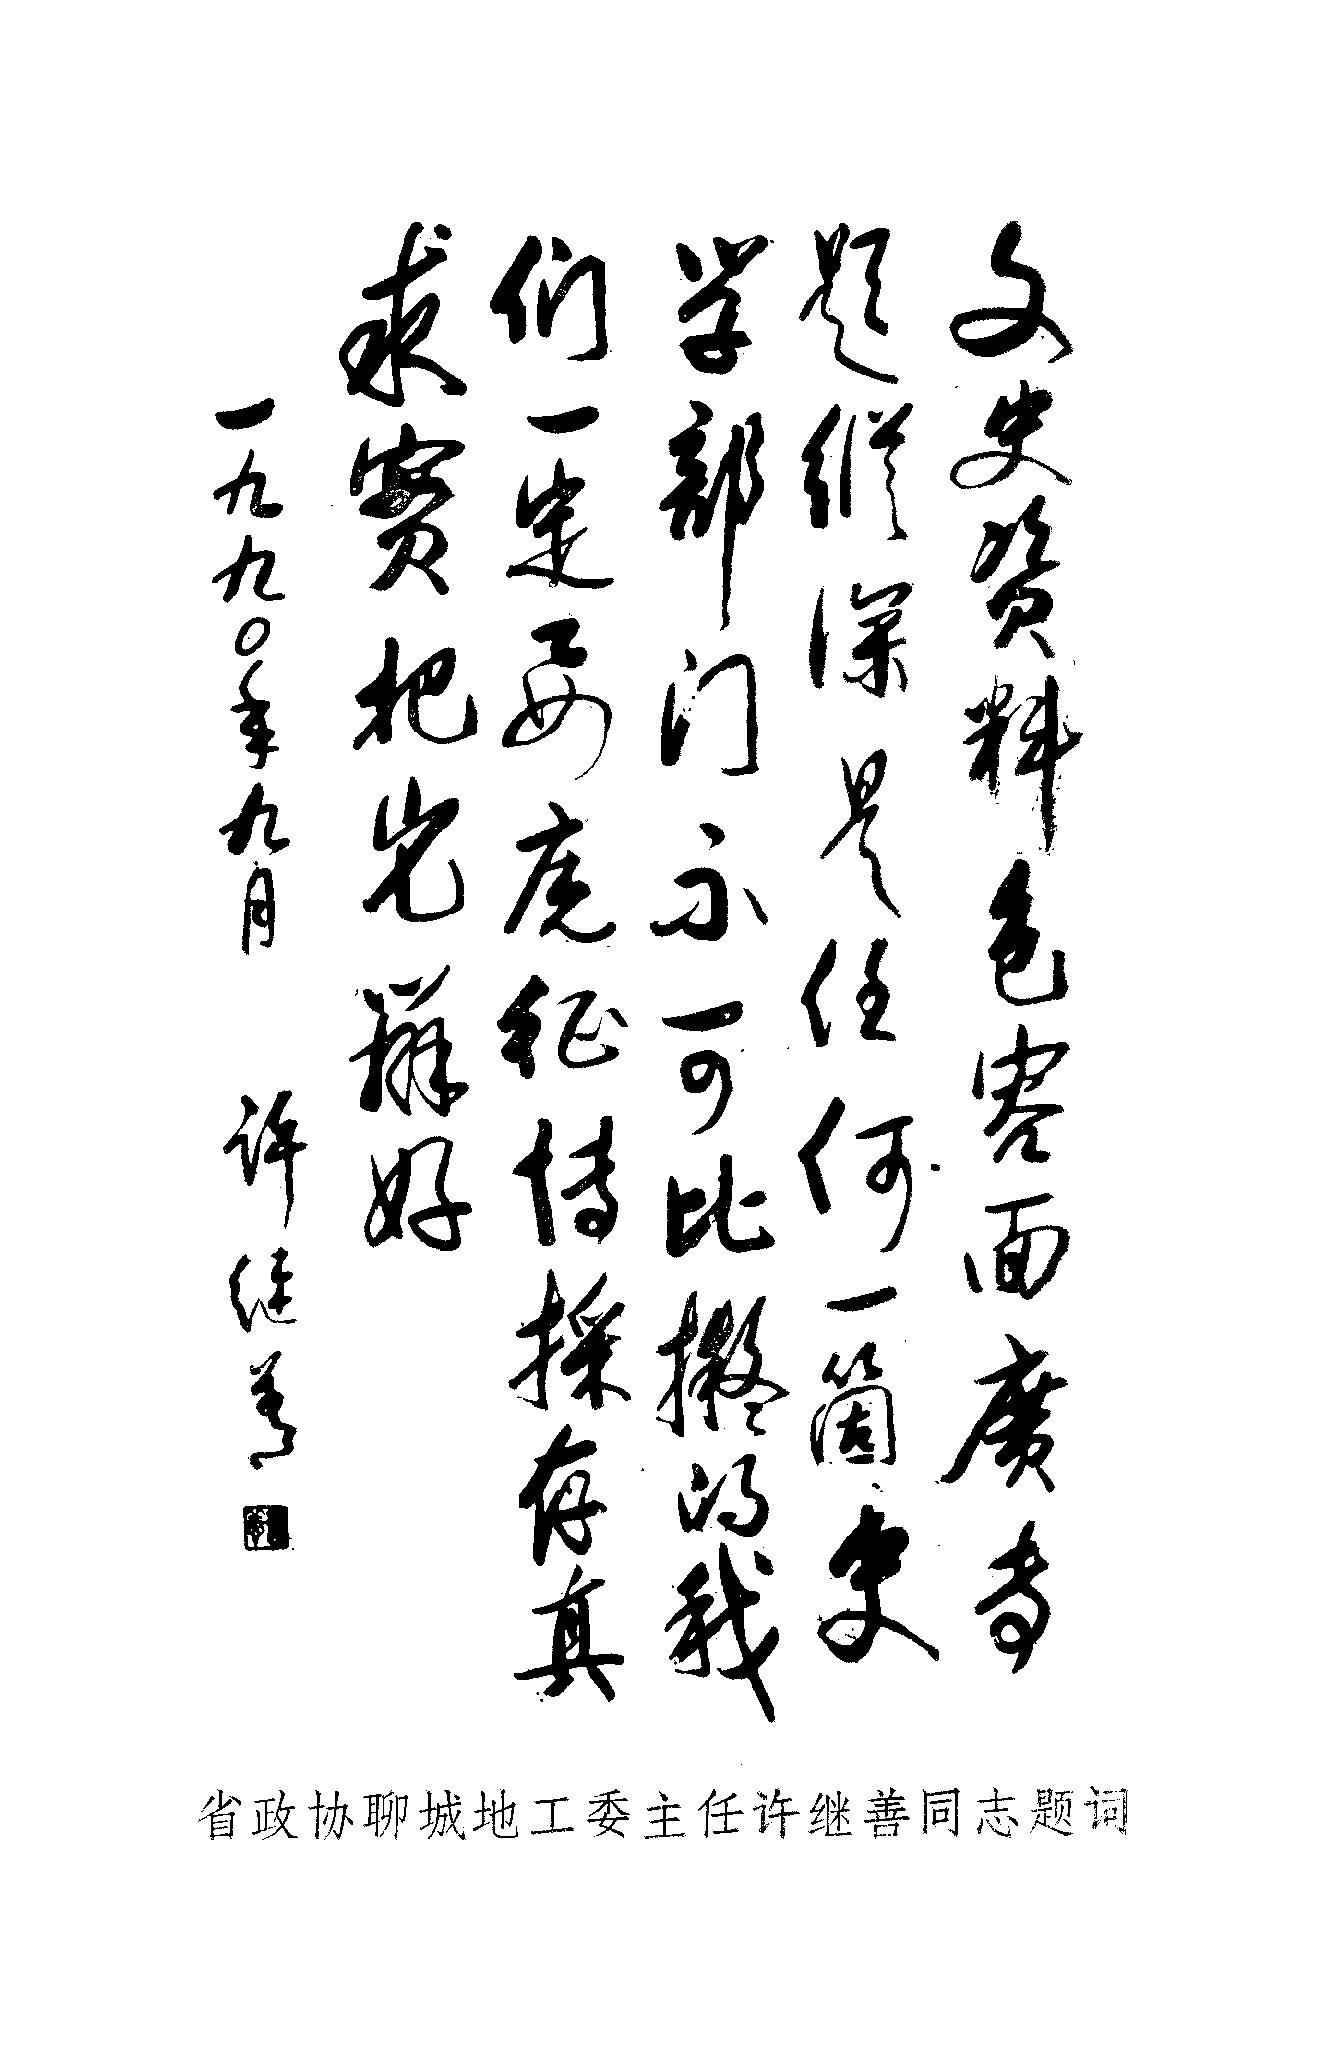 文史资料包容面廣专
题纵深是任何一箇史
学部门不可比擬的我
们一定要广征博採存真
求實把它辦好
一九九〇年九月 许继善
省政协聊城地工委主任许继善同志题词